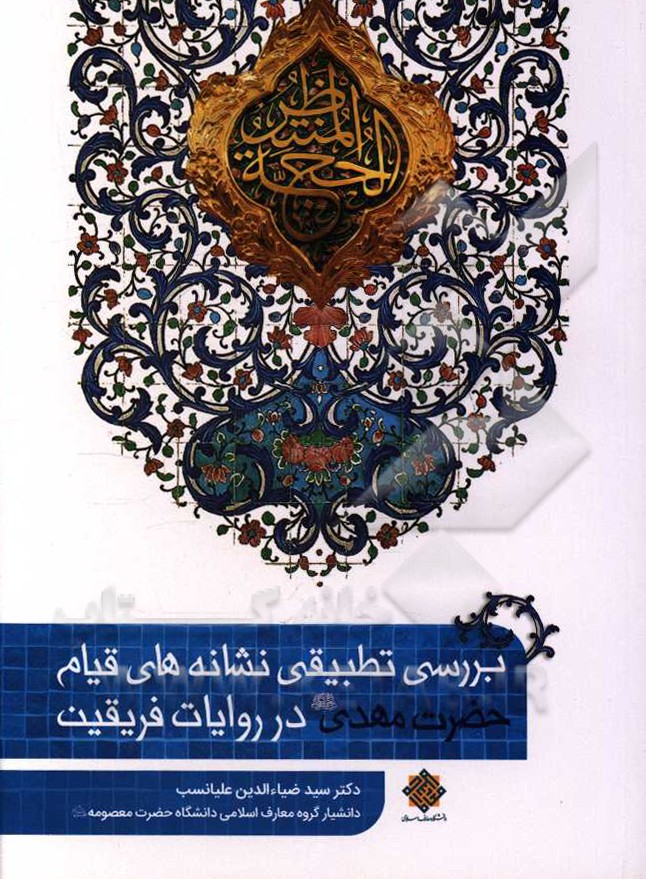 الحجة
المنتظر
بررسی تطبیقی نشانه های قیام
حضرت مهدی در روایات فریقین
دکتر سید ضیاءالدین علیانسب
دانشیار گروه معارف اسلامی دانشگاه حضرت معصومه
دانشگاه معارف اسلامی